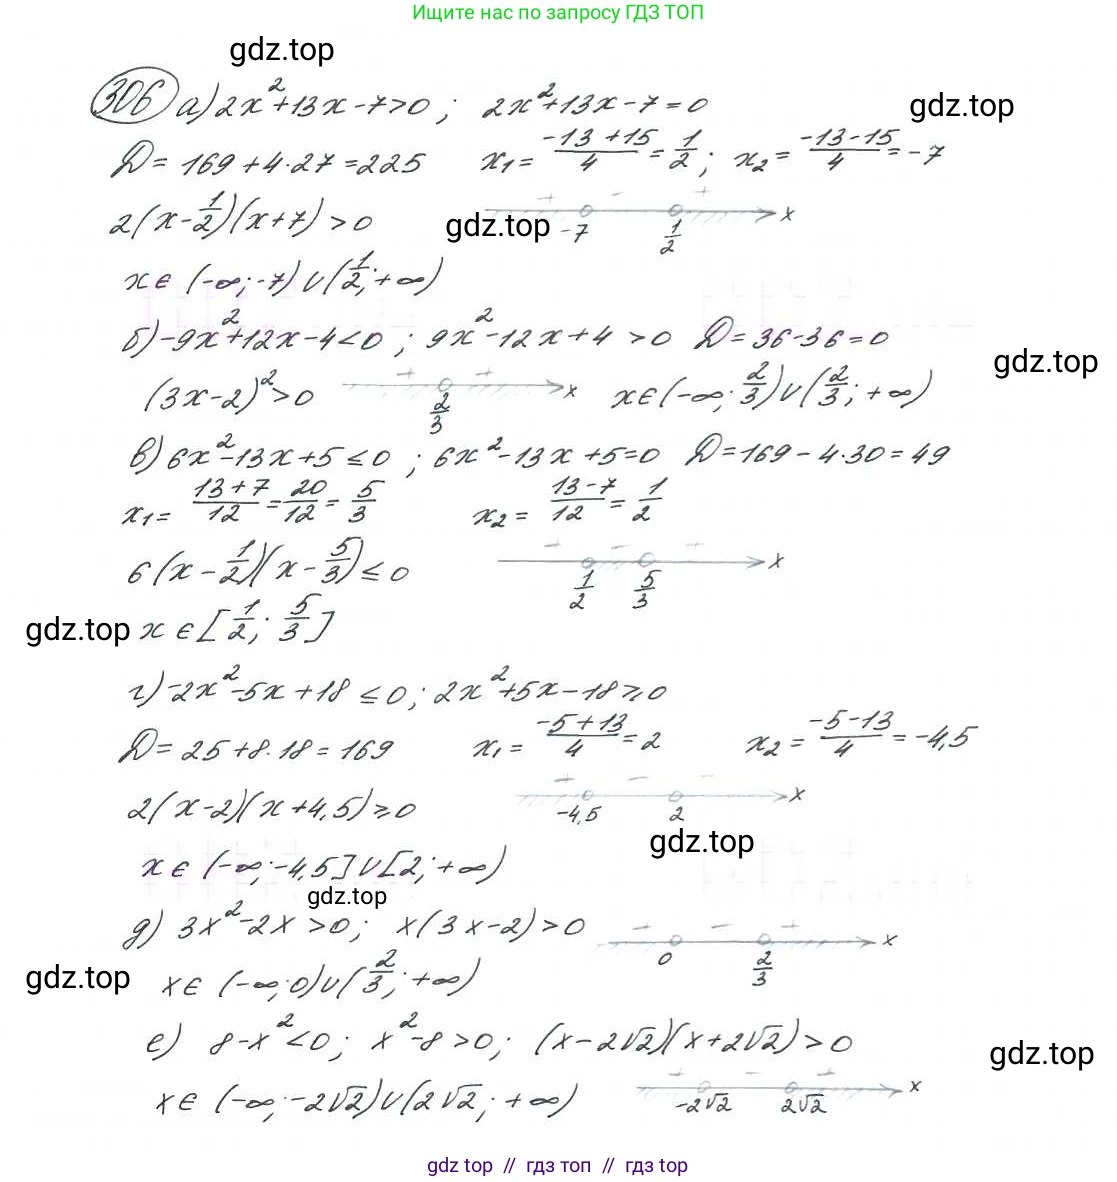 Ищите нас по запросу ГДЗ ТОП
gdz.top
306 а) 2x²+13x-7>0; 2x²+13x-7=0
gdz.top
D=169+4·27=225 x₁=(-13+15)/4=1/2; x₂=(-13-15)/4=-7
2(x-1/2)(x+7)>0
gdz.top
+ - +
-7 1/2 x
x∈(-∞;-7)∪(1/2;+∞)
б) -9x²+12x-4<0; 9x²-12x+4>0 D=36-36=0
gdz.top
(3x-2)²>0
+ +
2/3 x
x∈(-∞;2/3)∪(2/3;+∞)
в) 6x²-13x+5≤0; 6x²-13x+5=0 D=169-4·30=49
x₁=(13+7)/12=20/12=5/3 x₂=(13-7)/12=1/2
6(x-1/2)(x-5/3)≤0
+ - +
1/2 5/3 x
gdz.top
x∈[1/2;5/3]
г) -2x²-5x+18≤0; 2x²+5x-18≥0
D=25+8·18=169 x₁=(-5+13)/4=2 x₂=(-5-13)/4=-4,5
2(x-2)(x+4,5)≥0
+ - +
-4,5 2 x
gdz.top
x∈(-∞;-4,5]∪[2;+∞)
gdz.top
д) 3x²-2x>0; x(3x-2)>0
+ - +
0 2/3 x
gdz.top
x∈(-∞;0)∪(2/3;+∞)
е) 8-x²<0; x²-8>0; (x-2√2)(x+2√2)>0
gdz.top
x∈(-∞;-2√2)∪(2√2;+∞)
+ - +
-2√2 2√2 x
gdz top // гдз топ // gdz top